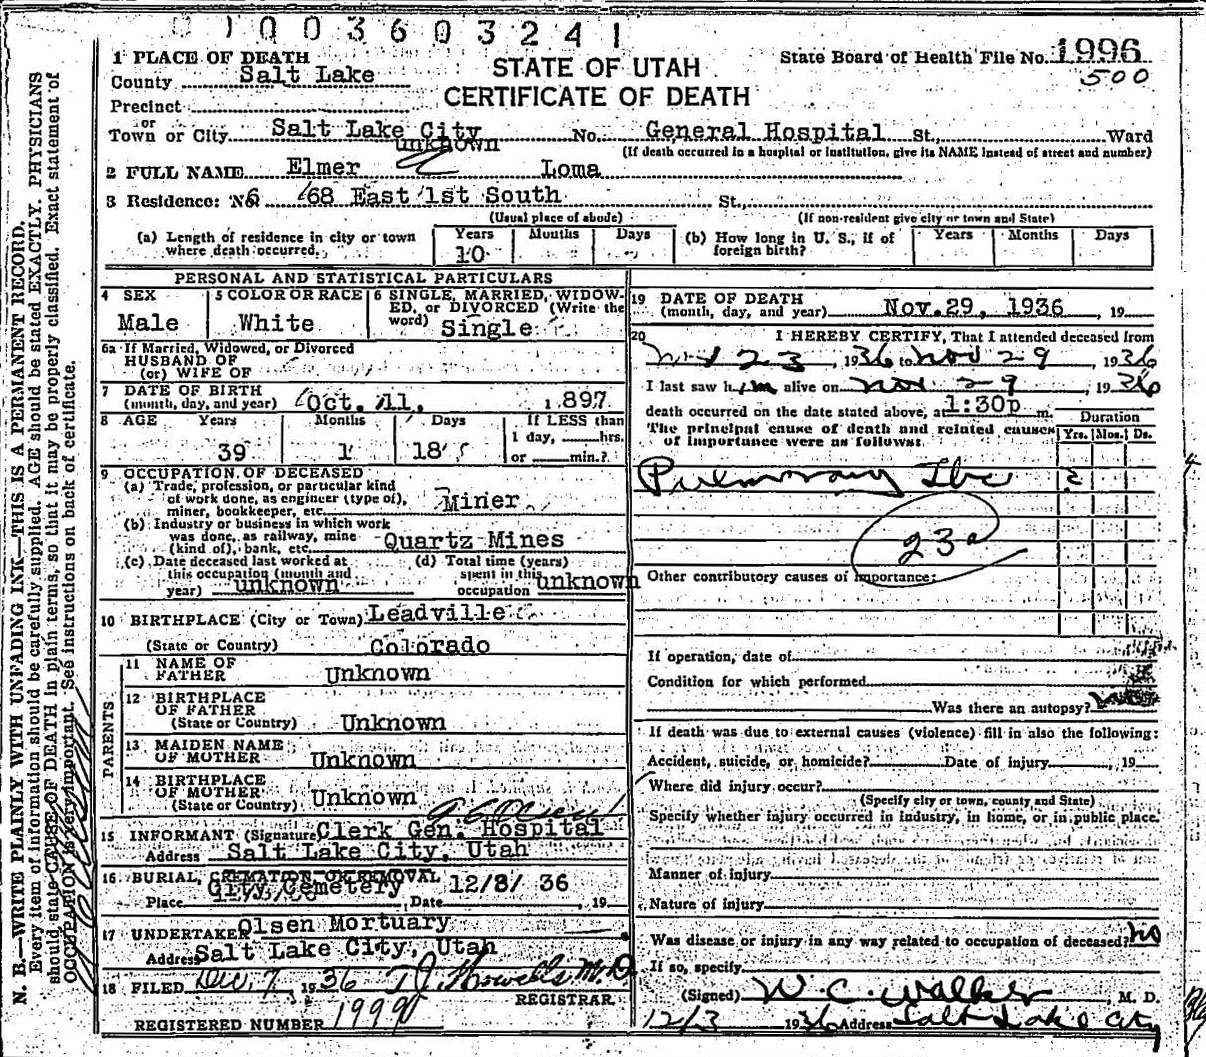 01003603241
1 PLACE OF DEATH
County Salt Lake
STATE OF UTAH
State Board of Health File No. 1996
500
CERTIFICATE OF DEATH
Precinct
or
Town or City Salt Lake City No. General Hospital St., Ward
unknown
(If death occurred in a hospital or institution, give its NAME instead of street and number)
2 FULL NAME Elmer Loma
3 Residence: No 68 East 1st South St.,
(Usual place of abode) (If non-resident give city or town and State)
(a) Length of residence in city or town where death occurred. Years 10 Months Days
(b) How long in U. S., if of foreign birth? Years Months Days
PERSONAL AND STATISTICAL PARTICULARS
4 SEX Male
5 COLOR OR RACE White
6 SINGLE, MARRIED, WIDOWED, or DIVORCED (Write the word) Single
6a If Married, Widowed, or Divorced
HUSBAND OF
(or) WIFE OF
7 DATE OF BIRTH
(month, day, and year) Oct. 11. 1897
8 AGE Years Months Days If LESS than
39 1 18 1 day, hrs.
or min.?
9 OCCUPATION OF DECEASED
(a) Trade, profession, or particular kind
of work done, as engineer (type of),
miner, bookkeeper, etc. Miner
(b) Industry or business in which work
was done, as railway, mine
(kind of), bank, etc. Quartz Mines
(c) Date deceased last worked at
this occupation (month and
year) unknown
(d) Total time (years)
spent in this
occupation unknown
10 BIRTHPLACE (City or Town) Leadville
(State or Country) Colorado
PARENTS
11 NAME OF
FATHER Unknown
12 BIRTHPLACE
OF FATHER
(State or Country) Unknown
13 MAIDEN NAME
OF MOTHER Unknown
14 BIRTHPLACE
OF MOTHER
(State or Country) Unknown
15 INFORMANT (Signature Clerk Gen. Hospital
Address Salt Lake City, Utah
16 BURIAL, CREMATION OR REMOVAL
Place City Cemetery Date 12/8/ 36, 19
17 UNDERTAKER Olsen Mortuary
Address Salt Lake City, Utah
18 FILED Dec. 7, 1936 M.D.
REGISTRAR
REGISTERED NUMBER 1999
19 DATE OF DEATH
(month, day, and year) Nov. 29, 1936, 19
20 I HEREBY CERTIFY, That I attended deceased from
Nov 23, 1936 to Nov 29 1936
I last saw him alive on Nov 29, 1936
death occurred on the date stated above, at 1:30p m.
The principal cause of death and related causes
of importance were as follows:
Duration
Yrs. Mos. Ds.
Pulmonary Tbc ?
23a
Other contributory causes of importance:
If operation, date of
Condition for which performed
Was there an autopsy? no
If death was due to external causes (violence) fill in also the following:
Accident, suicide, or homicide? Date of injury, 19
Where did injury occur?
(Specify city or town, county and State)
Specify whether injury occurred in industry, in home, or in public place.
Manner of injury
Nature of injury
Was disease or injury in any way related to occupation of deceased? no
If so, specify
(Signed) W. C. Walker, M. D.
12/3 1936 Address Salt Lake City
N. B.—WRITE PLAINLY WITH UNFADING INK—THIS IS A PERMANENT RECORD.
Every item of information should be carefully supplied. AGE should be stated EXACTLY. PHYSICIANS
should state CAUSE OF DEATH in plain terms, so that it may be properly classified. Exact statement of
OCCUPATION is very important. See instructions on back of certificate.